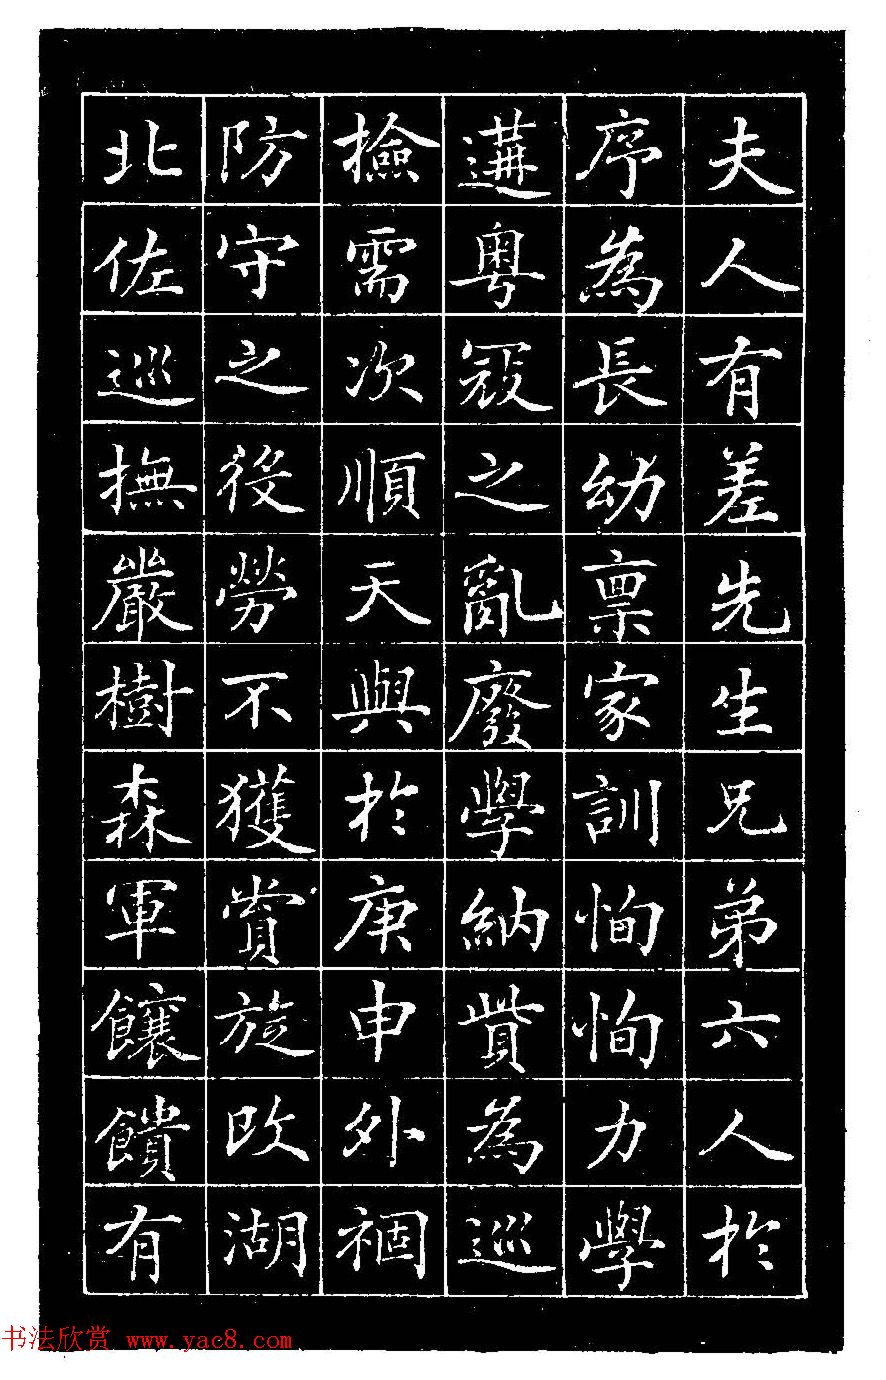 夫人有差先生兄弟六人於
序為長幼稟家訓恂恂力學
遘粵寇之亂廢學納貲為巡
檢需次順天與於庚申外裀
防守之役勞不獲賞旋改湖
北佐巡撫嚴樹森軍饟饋有
书法欣赏 www.yac8.com